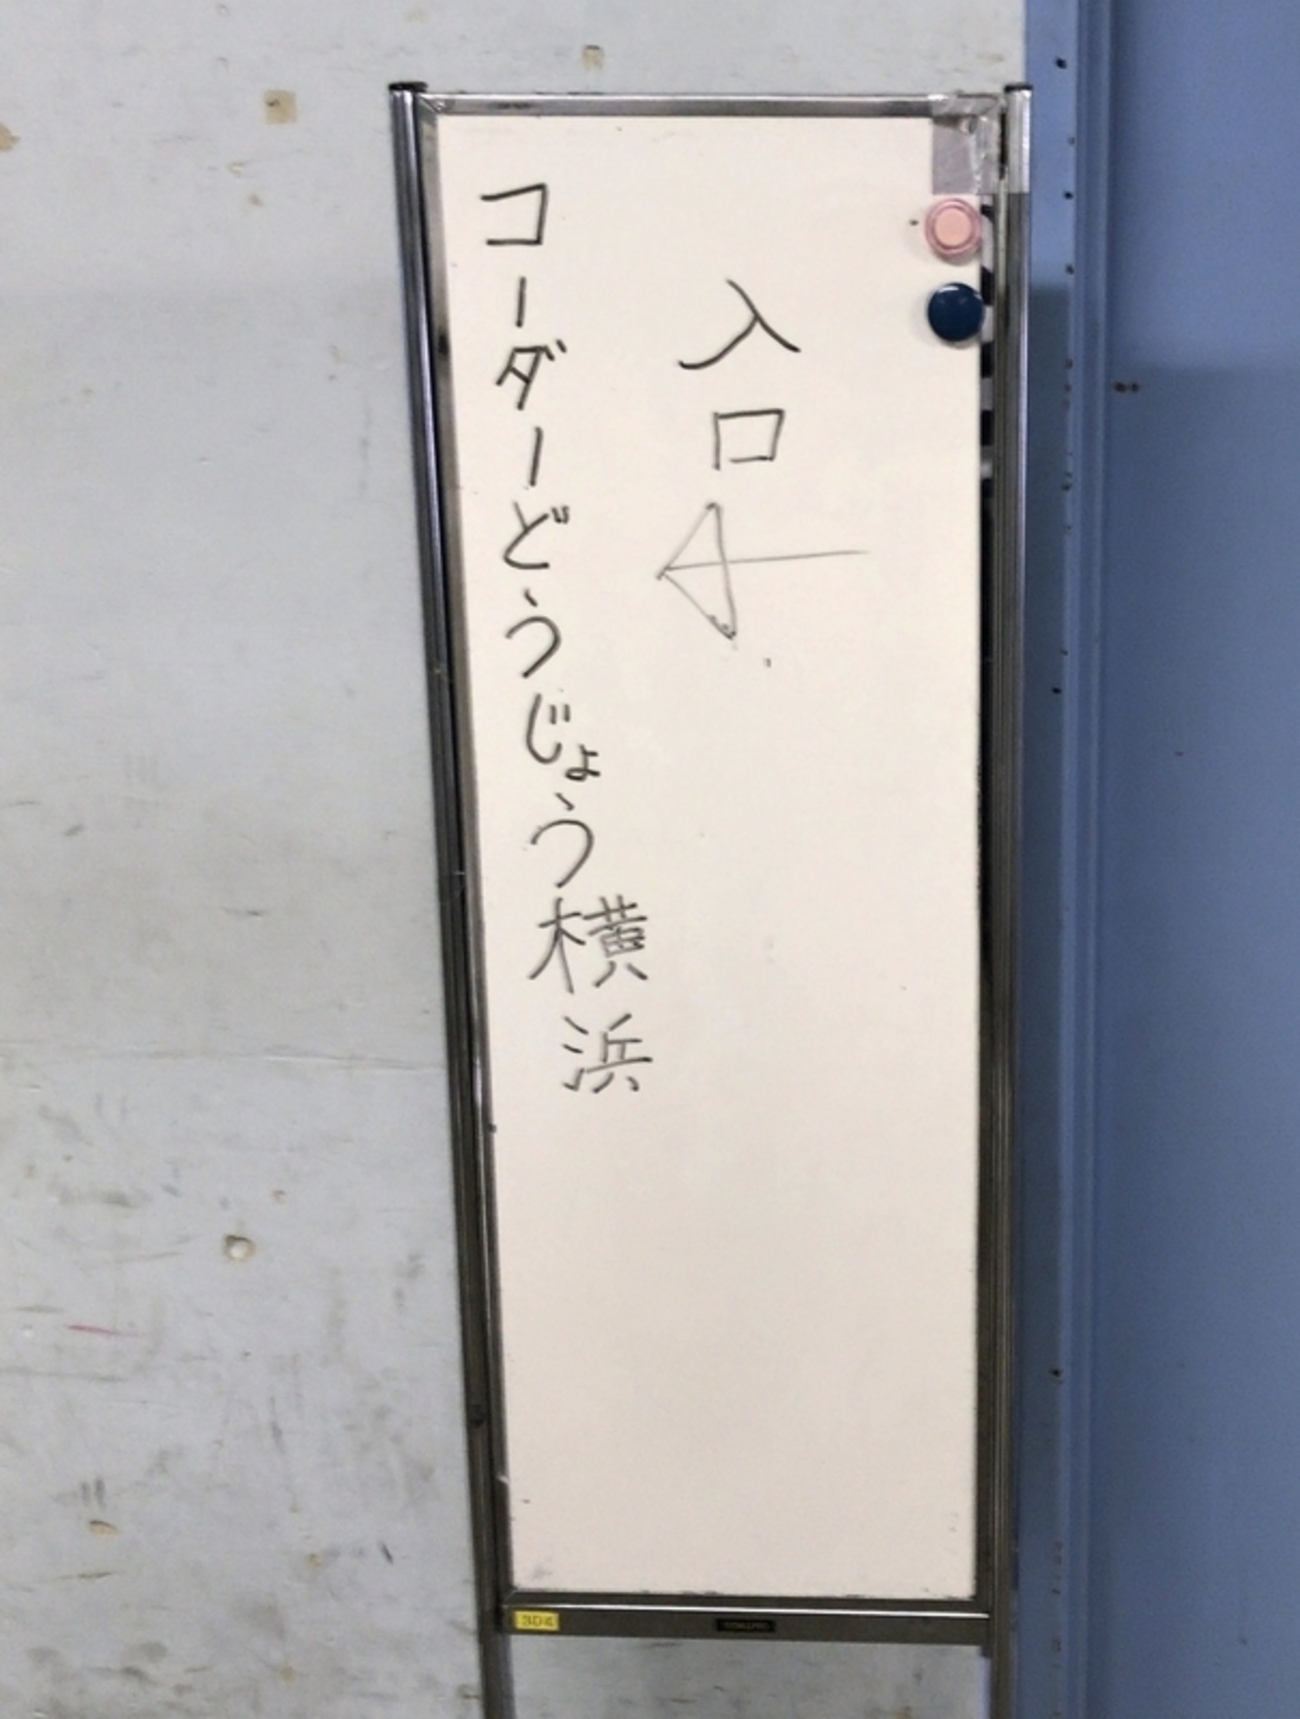 入口
コーダーどうじょう横浜
304